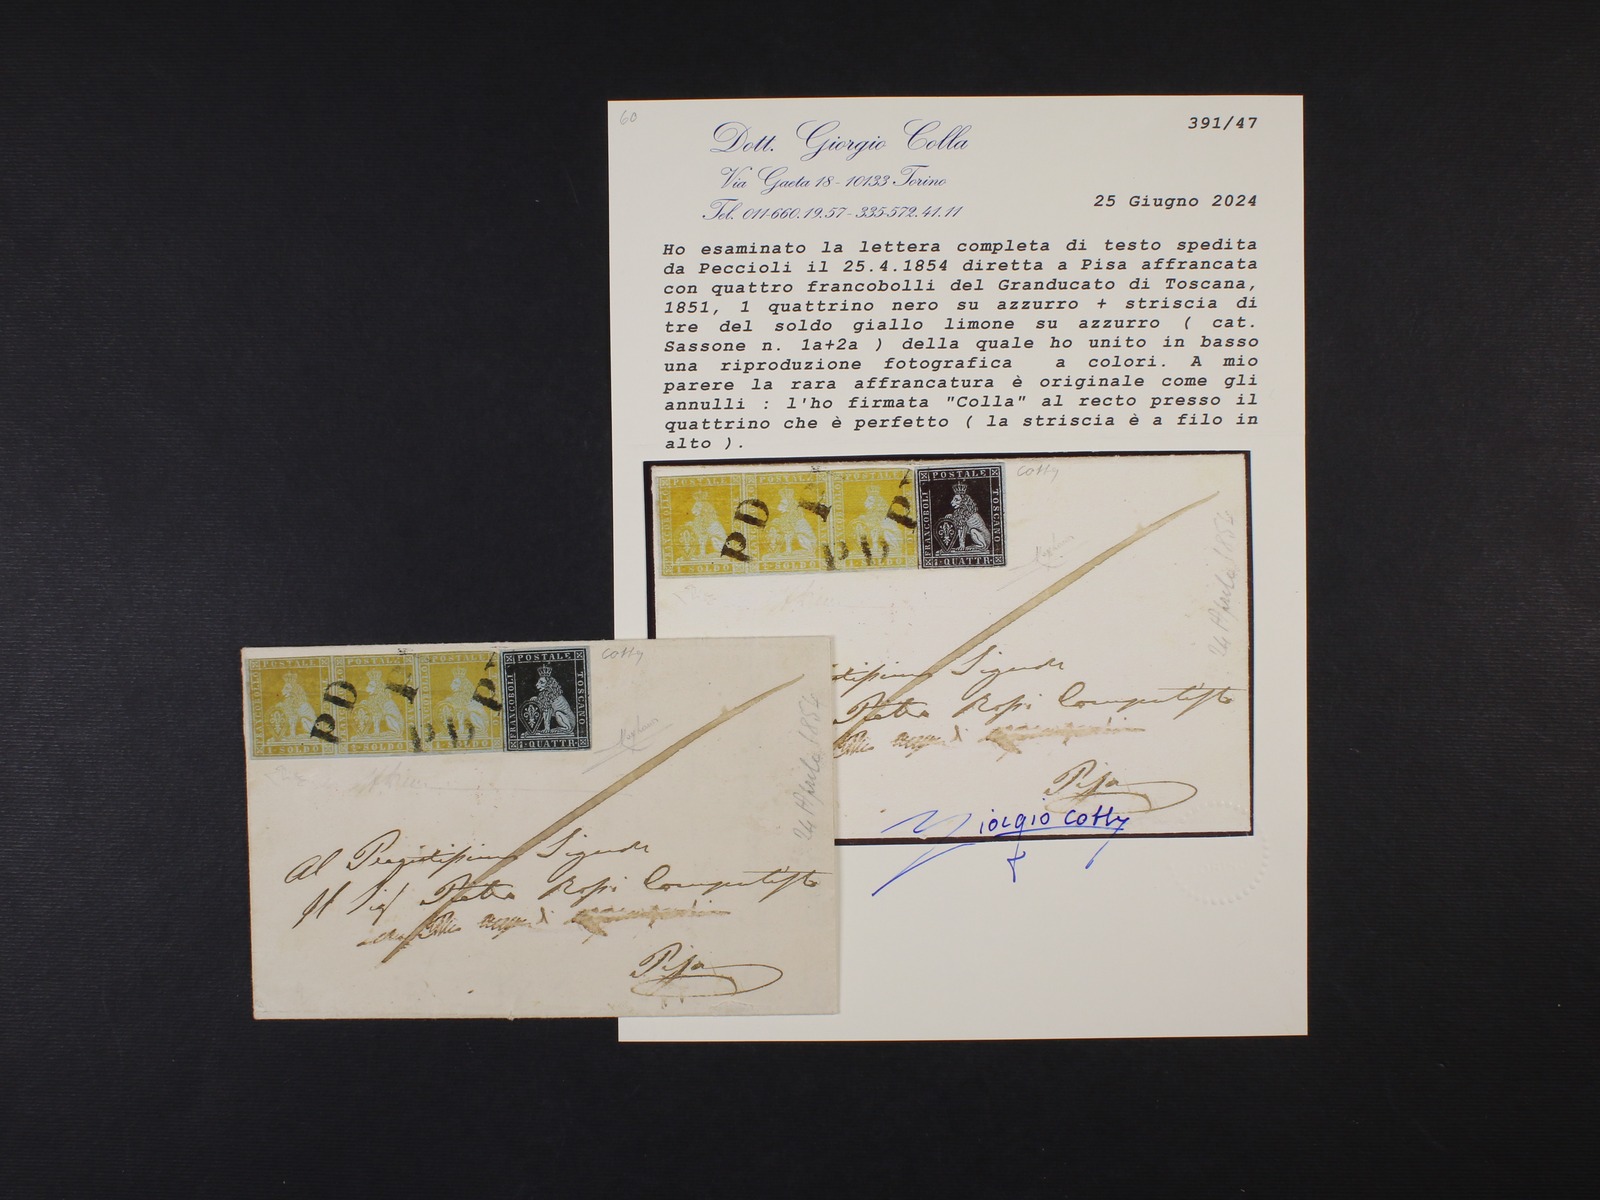 60
391/47
Dott. Giorgio Colla
Via Gaeta 18 - 10133 Torino
Tel. 011-660.19.57 - 335-572.41.11
25 Giugno 2024
Ho esaminato la lettera completa di testo spedita
da Peccioli il 25.4.1854 diretta a Pisa affrancata
con quattro francobolli del Granducato di Toscana,
1851, 1 quattrino nero su azzurro + striscia di
tre del soldo giallo limone su azzurro ( cat.
Sassone n. 1a+2a ) della quale ho unito in basso
una riproduzione fotografica a colori. A mio
parere la rara affrancatura è originale come gli
annulli : l'ho firmata "Colla" al recto presso il
quattrino che è perfetto ( la striscia è a filo in
alto ).
FRANCOBOLLO POSTALE 1 SOLDO
POSTALE 1 SOLDO
POSTALE 1 SOLDO
FRANCOBOLI POSTALE TOSCANO 1 QUATTR
PD
PD
Colla
24 Aprile 1854
Signore
Pietro Rossi Computista
Pisa
Giorgio Colla
FRANCOBOLLO POSTALE 1 SOLDO
POSTALE 1 SOLDO
POSTALE 1 SOLDO
FRANCOBOLI POSTALE TOSCANO 1 QUATTR
PD
PD
Colla
24 Aprile 1854
Al Pregiatissimo Signore
Il Sig Pietro Rossi Computista
Pisa